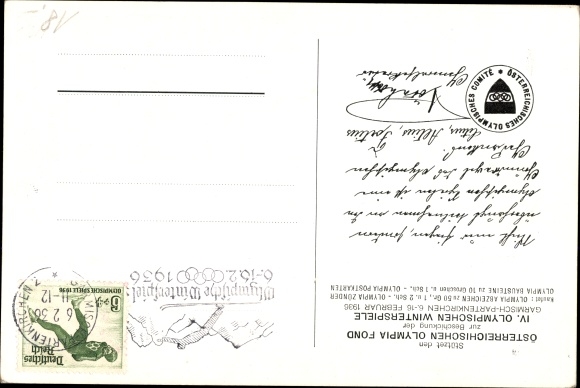 Stützet den
ÖSTERREICHISCHEN OLYMPIA FOND
zur Beschickung der
IV. OLYMPISCHEN WINTERSPIELE
GARMISCH-PARTENKIRCHEN 6-16 FEBRUAR 1936
Kaufet: OLYMPIA ABZEICHEN zu 50 Gr., 1 u. 2 Sch. - OLYMPIA BÄNDER
OLYMPIA BAUSTEINE zu 10 Groschen u. 1 Sch. - OLYMPIA POSTKARTEN
Nicht nur siegen, sondern
überhaupt teilnehmen an den
Olympischen Spielen ist eine
des Olympischen
Citius, Altius, Fortius
Generalsekretär
ÖSTERREICHISCHES OLYMPISCHES COMITÉ
Deutsches
Reich
6+4
OLYMPISCHE SPIELE 1936
GARMISCH-PARTENKIRCHEN 2
6.2.36
11-12
Olympische Winterspiele
6.-16.2.1936
18.-